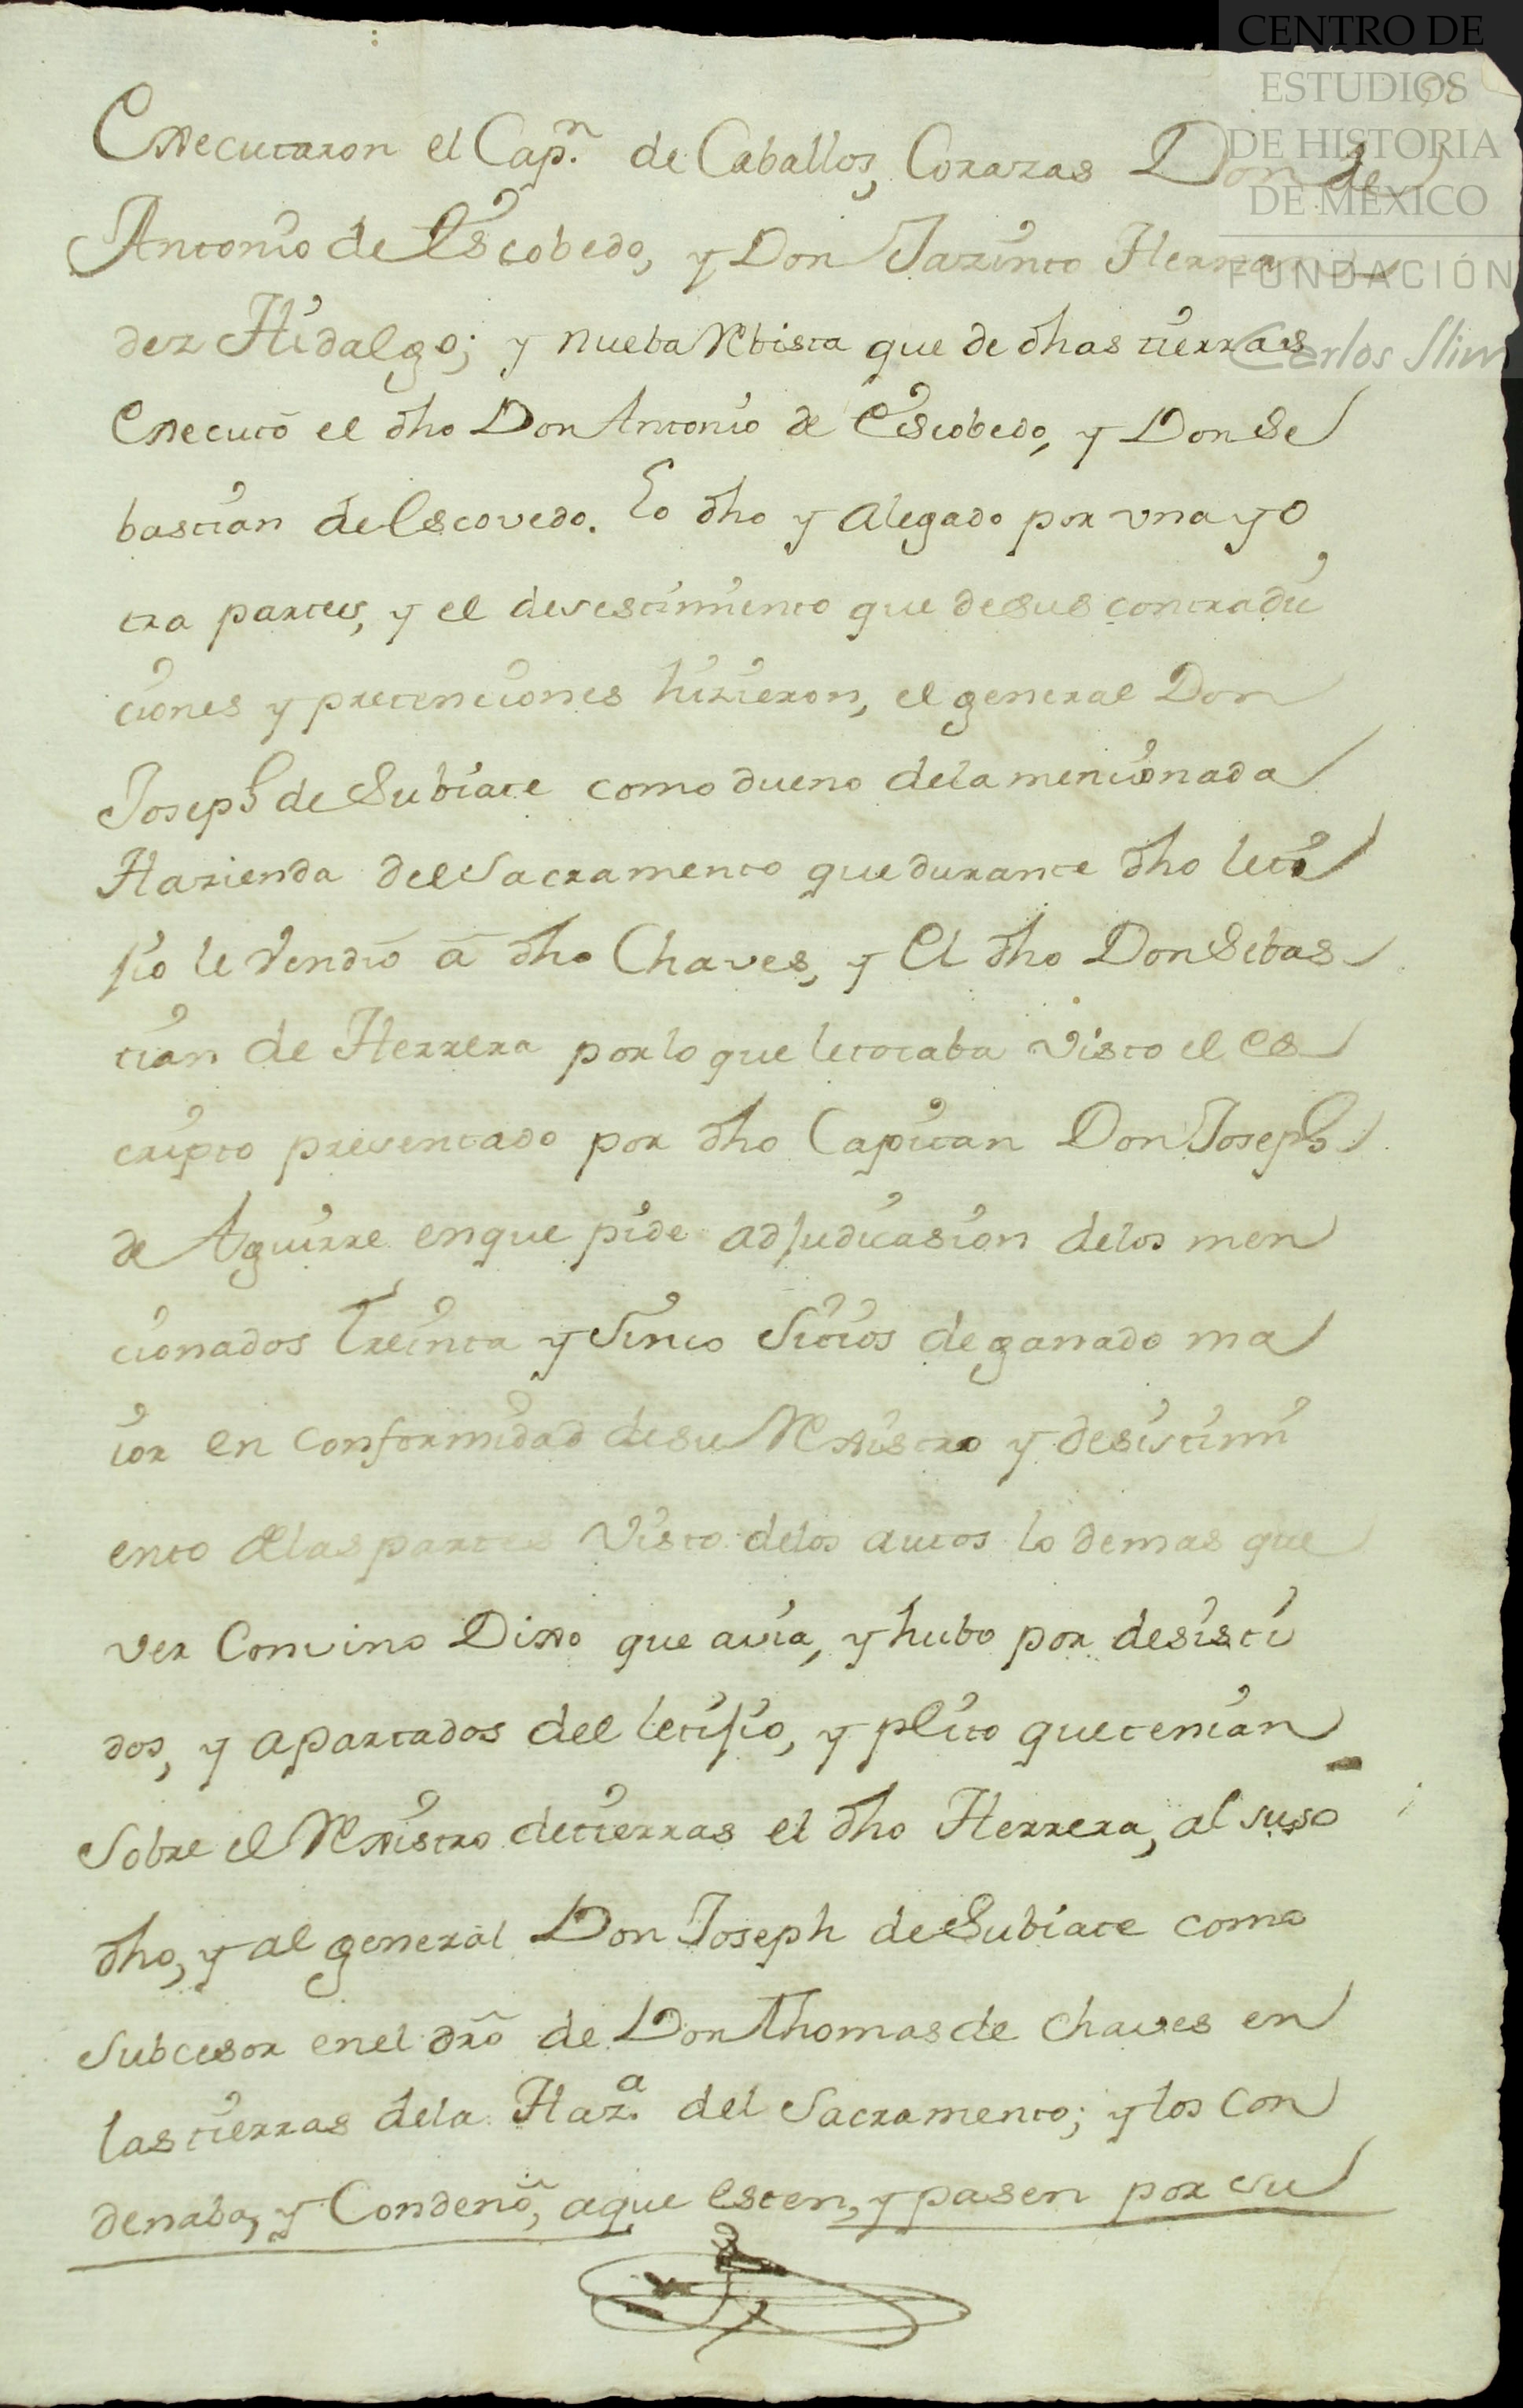 CENTRO DE
ESTUDIOS
DE HISTORIA
DE MÉXICO
FUNDACIÓN
Carlos Slim
Executaron el Cap.n de Caballos, Corazas Don
Antonio de Escobedo, y Don Jazinto Hernan
dez Hidalgo; y nueba Rebista que de dhas tierras
Executó el dho Don Antonio de Escobedo, y Don Se
bastian de Escovedo. Lo dho y alegado por una y o
tra partes, y el desestimiento que de sus contradi
ciones y pretenciones hizieron, el general Don
Joseph de Subiate como dueno de la mencionada
Hazienda del Sacramento que durante dho leti
jio le vendió á dho Chaves, y el dho Don Sebas
tian de Herrera por lo que le tocaba visto el es
cripto presentado por dho Capitan Don Joseph
de Aguirre en que pide adjudicasion de los men
cionados treinta y sinco sitios de ganado ma
ior en conformidad de su Rexistro y desistimi
ento de las partes visto de los autos lo demas que
ver convino Dixo que avia, y hubo por desisti
dos, y apartados del letijio, y plito que tenian
sobre el Rexistro de tierras el dho Herrera, al suso
dho, y al general Don Joseph de Subiate como
subcesor en el dró de Don Thomas de Chaves en
las tierras de la Haz.a del Sacramento; y los con
denaba, y Condenó, a que esten, y pasen por su